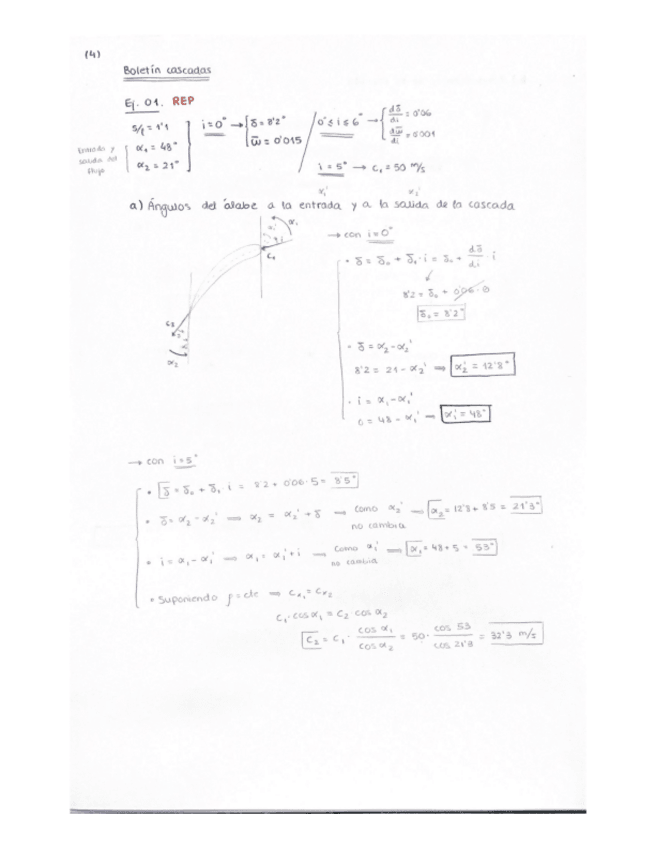 (4)
Boletín cascadas
Ej. 01. REP
s/l = 1'1
α₁ = 48°
α₂ = 21°
Entrada y
salida del
flujo
i = 0° → δ = 8'2°
ω̄ = 0'015
0° ≤ i ≤ 6° → dδ/di = 0'06
dω̄/di = 0'001
i = 5° → c₁ = 50 m/s
α₁' α₂'
a) Ángulos del álabe a la entrada y a la salida de la cascada
α₁
i
c₁
c₂
α₂
→ con i = 0°
• δ = δ₀ + δ₁ · i = δ₀ + dδ/di · i
8'2 = δ₀ + 0'06 · 0
δ₀ = 8'2°
• δ = α₂ - α₂'
8'2 = 21 - α₂' ⟹ α₂' = 12'8°
• i = α₁ - α₁'
0 = 48 - α₁' ⟹ α₁' = 48°
→ con i = 5°
• δ = δ₀ + δ₁ i = 8'2 + 0'06 · 5 = 8'5°
• δ = α₂ - α₂' ⟹ α₂ = α₂' + δ → como α₂' no cambia ⟹ α₂ = 12'8 + 8'5 = 21'3°
• i = α₁ - α₁' ⟹ α₁ = α₁' + i → como α₁' no cambia ⟹ α₁ = 48 + 5 = 53°
• Suponiendo ρ = cte ⟹ Cx₁ = Cx₂
C₁ · cos α₁ = C₂ cos α₂
C₂ = C₁ · cos α₁ / cos α₂ = 50 · cos 53 / cos 21'3 = 32'3 m/s